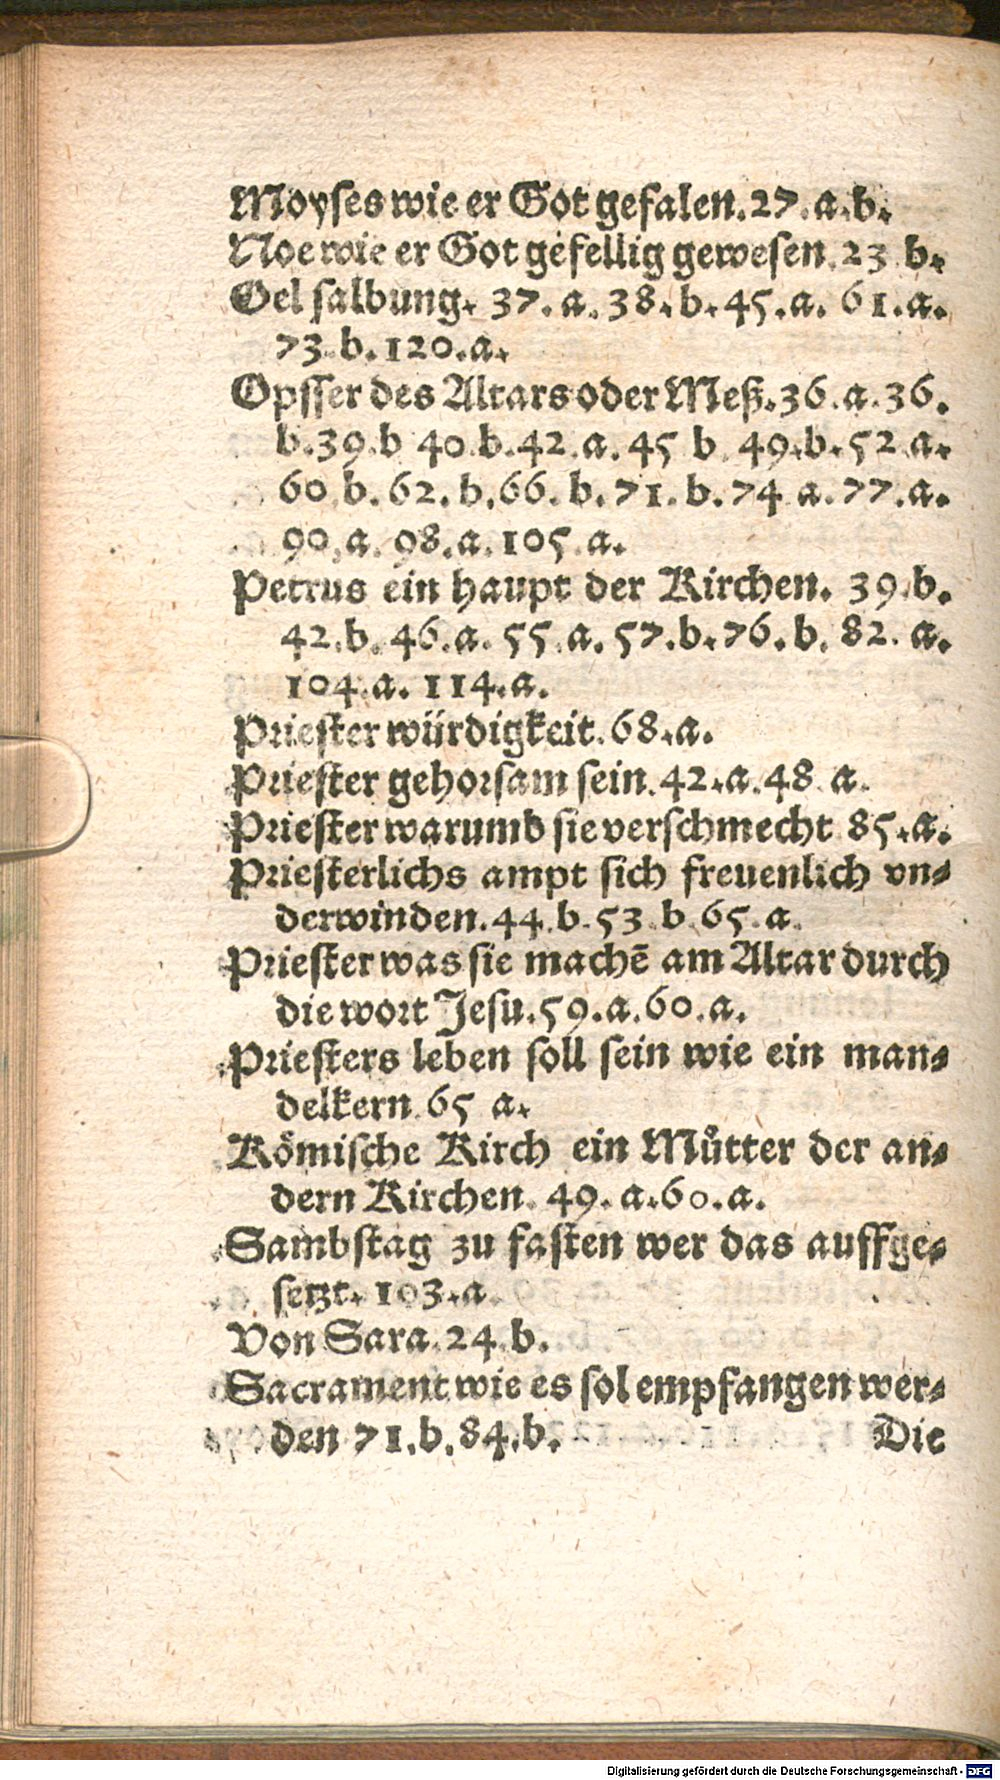 Moyſes wie er Got gefalen. 27. a. b.
Noe wie er Got gefellig geweſen. 23 b.
Oel ſalbung. 37. a. 38. b. 45. a. 61. a.
73. b. 120. a.
Opffer des Altars oder Meß. 36. a. 36.
b. 39. b 40. b. 42. a. 45 b. 49. b. 52 a.
60 b. 62. b. 66. b. 71. b. 74 a. 77. a.
90. a. 98. a. 105. a.
Petrus ein haupt der Kirchen. 39. b.
42. b. 46. a. 55. a. 57. b. 76. b. 82. a.
104. a. 114. a.
Prieſter würdigkeit. 68. a.
Prieſter gehorſam ſein. 42. a. 48. a.
Prieſter warumb ſie verſchmecht 85. a.
Prieſterlichs ampt ſich freuenlich vn⸗
derwinden. 44. b. 53. b. 65. a.
Prieſter was ſie machē am Altar durch
die wort Jeſu. 59. a. 60. a.
Prieſters leben ſoll ſein wie ein man⸗
delkern. 65 a.
Römiſche Kirch ein Můtter der an⸗
dern Kirchen. 49. a. 60. a.
Sambſtag zu faſten wer das auffge⸗
ſetzt. 103. a.
Von Sara. 24. b.
Sacrament wie es ſol empfangen wer⸗
den 71. b. 84. b. Die
Digitalisierung gefördert durch die Deutsche Forschungsgemeinschaft - DFG